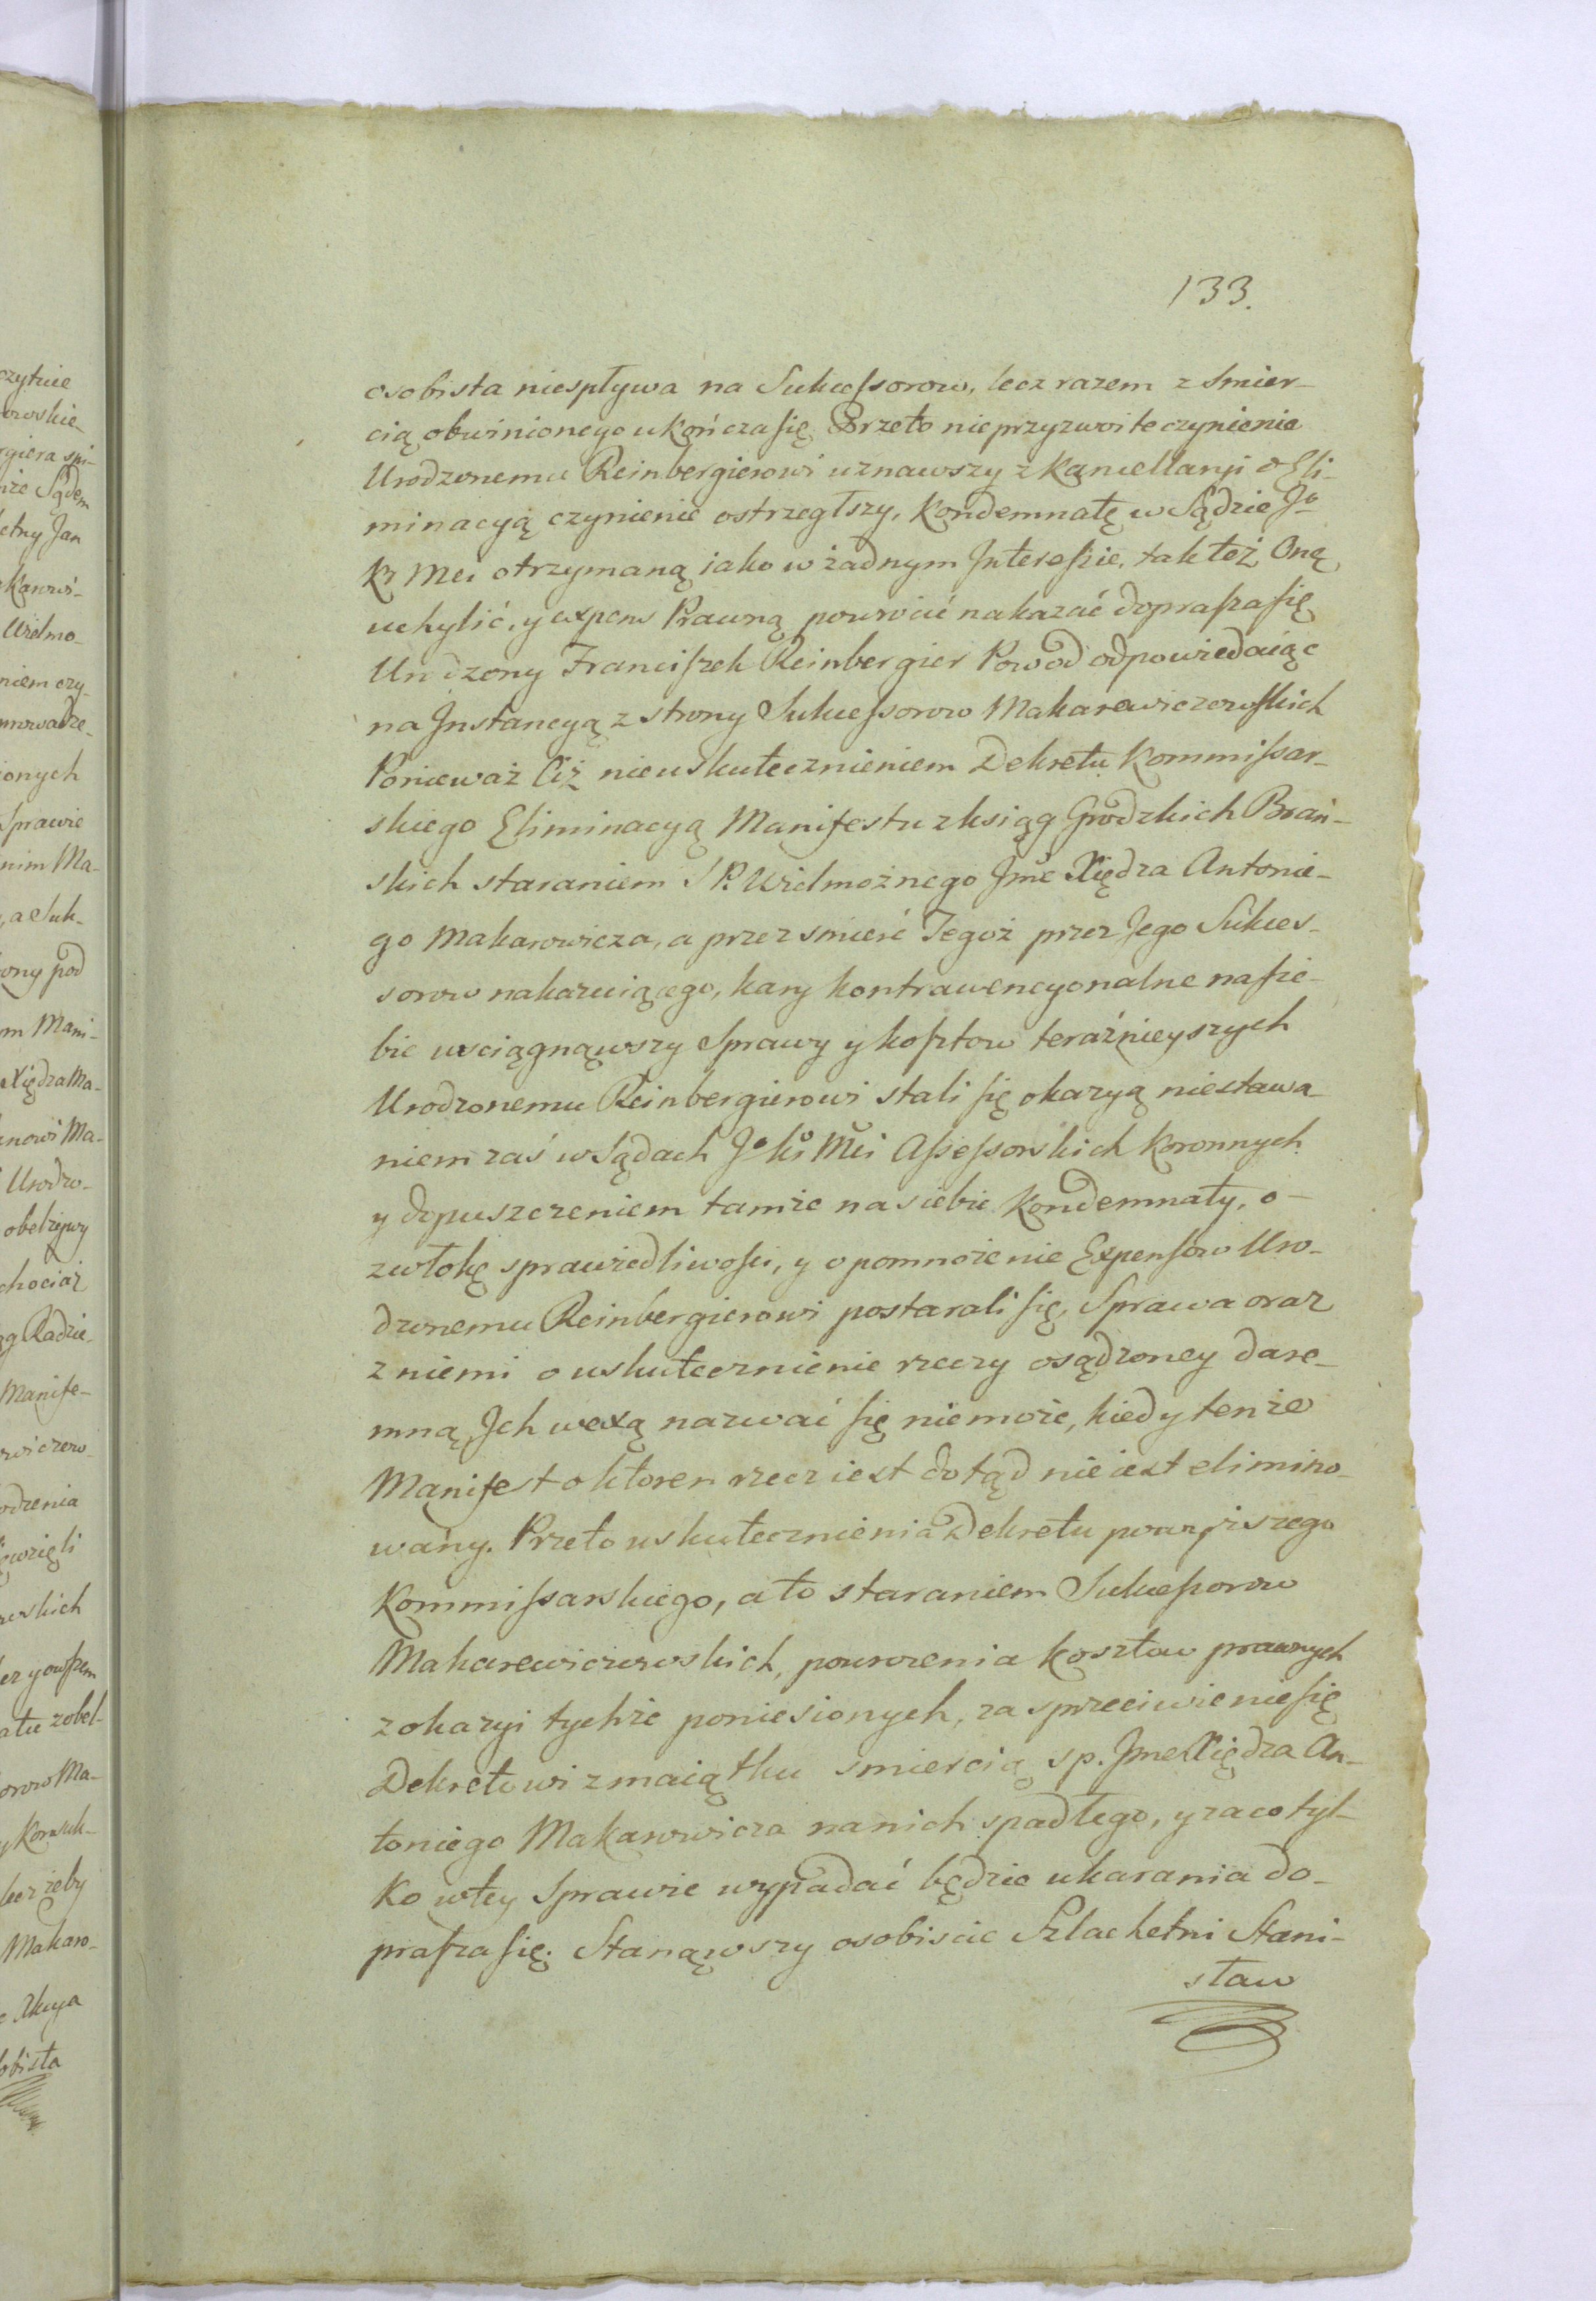 133.
osobista niespływa na Sukcessorow, lecz razem z Smier-
cią obwinionego ukończa się Przeto nieprzyzwoite czynienie
Urodzonemu Reinbergierowi uznawszy z Kancellaryi o Eli-
minacyą czynienie ostrzegłszy, Kondemnatę w Sądzie Jo
Kr Mci otrzymaną iako w żadnym Interessie, tak też Oną
uchylić, y expens Prawną powrocić nakazać doprasza się
Urodzony Franciszek Reinbergier Powod odpowiedaiąc
na Jnstancyą z strony Sukcessorow Makarewiczowskich
Ponieważ Ciż nieuskutecznieniem Dekretu Kommissar-
skiego Eliminacyą Manifestu z ksiąg Grodzkich Brań-
skich staraniem Ś P. Wielmożnego Jmc Xiędza Antonie-
go Makarowicza, a przez smierć Tegoż przez Jego Sukces-
sorow nakazuiącego, kary kontrawencyonalne na sie-
bie wsciągnąwszy Sprawy y kosztow teraźnieyszych
Urodzonemu Reinbergierowi stali się okazyą niestawa-
niem zaś w Sądach Jo Kr Mci Assessorskich Koronnych
y dopuszczeniem tamże na siebie Kondemnaty, o-
zwłokę sprawiedliwości, y o pomnożenie Expensow Uro-
dzonemu Reinbergierowi postarali się, Sprawa oraz
z niemi o uskutecznienie rzeczy osądzoney dare-
mną, Jch wexą nazwać się niemoże, kiedy tenże
Manifest o ktoren rzecz iest dotąd nie iest elimino-
wany. Przeto uskutecznienia Dekretu powyższego
Kommissarskiego, a to staraniem Sukcessorow
Makarewiczowskich, powrocenia kosztow prawnych
z okazyi tychże poniesionych, za sprzeciwienie się
Dekretowi z maiątku smiercią sp. Jmc Xiędza An-
toniego Makarowicza na nich spadłego, y za co tyl-
ko w tey Sprawie wypadać będzie ukarania do-
prasza się. Stanąwszy osobiscie Szlachetni Stani-
sław
czytnie
owskie-
rgiera spi-
nże Sądem
etny Jan
Wielmo-
niem czy-
ionych
Sprawie
nim Ma-
, a Suk-
ony pod
m Mani-
Xiędza Ma-
nowi Ma-
Urodzo-
obelżywy
chociaż
g Radzie-
Manife-
odzenia
wzięli
wskich
orow Ma-
żeby
Makaro-
obista